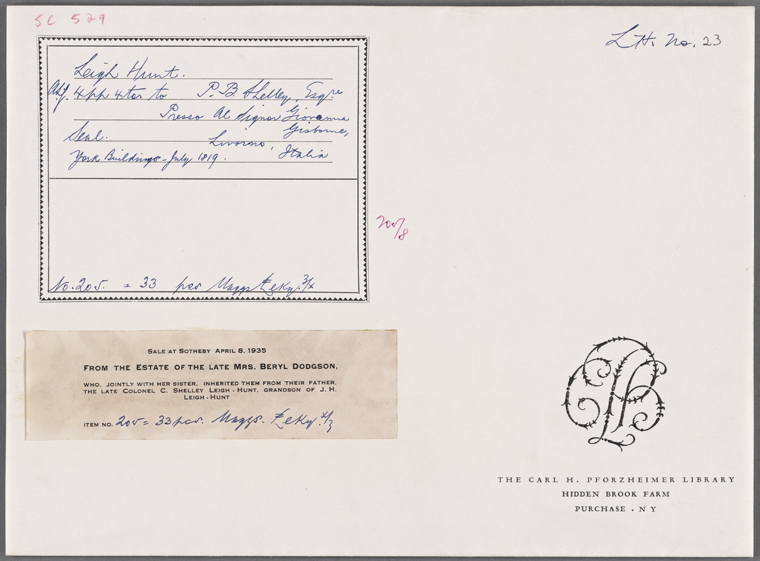 SC 529
LH. No. 23
Leigh Hunt.
4pp 4to to P. B. Shelley, Esqre
Presso Al Signor Giovanni
Gisborne,
Seal. Livorno,
York Buildings - July 1819. Italia
200/8
No. 205. = 33 per Maggs
SALE AT SOTHEBY APRIL 8, 1935
FROM THE ESTATE OF THE LATE MRS. BERYL DODGSON,
WHO, JOINTLY WITH HER SISTER, INHERITED THEM FROM THEIR FATHER,
THE LATE COLONEL C. SHELLEY LEIGH-HUNT, GRANDSON OF J. H.
LEIGH-HUNT
ITEM NO. 205 = 33 per. Maggs.
THE CARL H. PFORZHEIMER LIBRARY
HIDDEN BROOK FARM
PURCHASE · NY